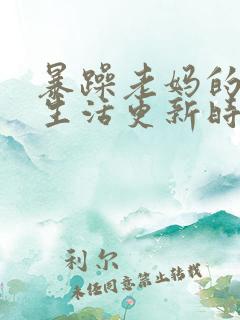 暴躁老妈的
生活更新时
利尔
未经同意禁止转载